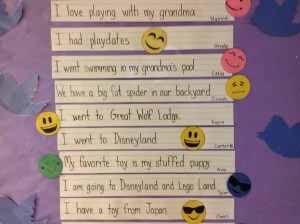 I love playing with my grandma
Hannah
I had playdates
I went swimming in my grandma's pool.
We have a big fat spider in our backyard.
I went to Great Wolf Lodge.
I went to Disneyland
Carter
My favorite toy is my stuffed puppy
I am going to Disneyland and Lego Land
I have a toy from Japan.
Owen